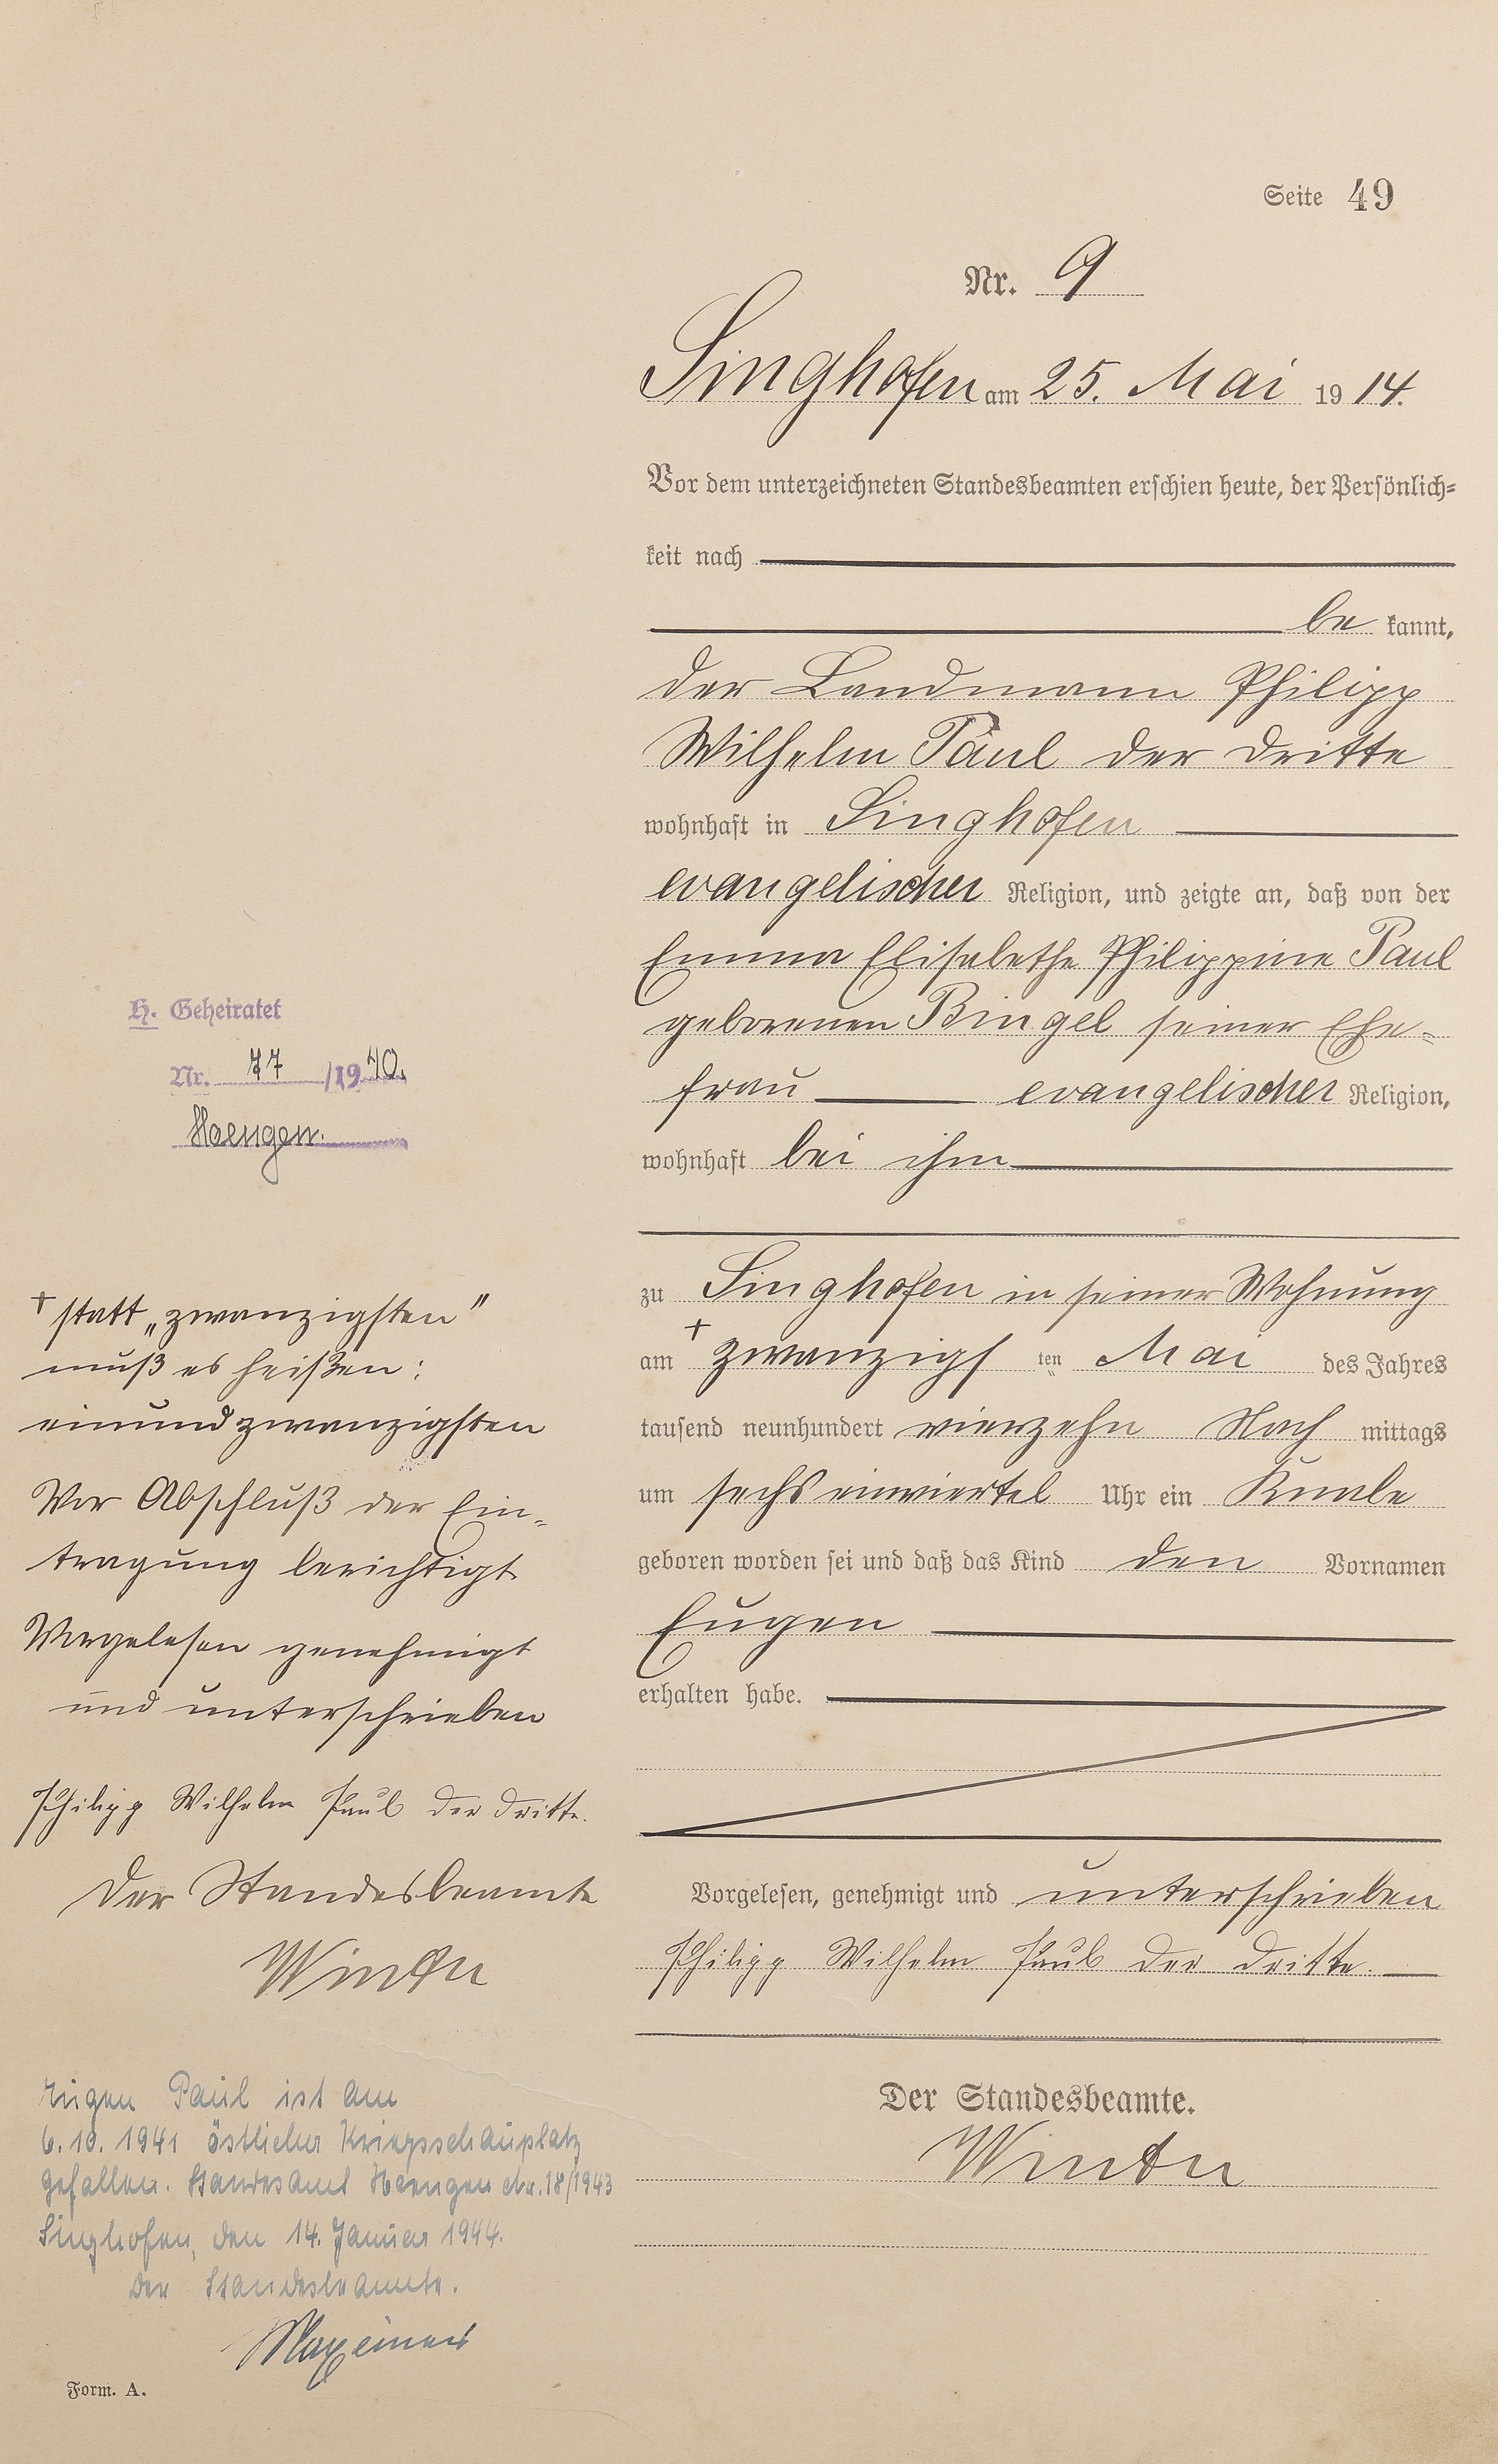 Seite 49
Nr. 9
Singhofen am 25. Mai 1914.
Vor dem unterzeichneten Standesbeamten erschien heute, der Persönlich-
keit nach
be kannt,
der Landmann Philipp
Wilhelm Paul der Dritte
wohnhaft in Singhofen
evangelischer Religion, und zeigte an, daß von der
Emma Elisabethe Philippine Paul
geborenen Bingel seiner Ehe-
frau evangelischer Religion,
wohnhaft bei ihm
zu Singhofen in seiner Wohnung
am + zwanzigs ten Mai des Jahres
tausend neunhundert vierzehn Nach mittags
um sechs einviertel Uhr ein Knabe
geboren worden sei und daß das Kind den Vornamen
Eugen
erhalten habe.
Vorgelesen, genehmigt und unterschrieben
Philipp Wilhelm Paul der Dritte.
Der Standesbeamte.
Winter
H. Geheiratet
Nr. 77/1940.
Hoengen.
+ statt „zwanzigsten"
muß es heißen:
einundzwanzigsten
Vor Abschluß der Ein-
tragung berichtigt
Vorgelesen genehmigt
und unterschrieben
Philipp Wilhelm Paul der Dritte.
Der Standesbeamte
Winter
Eugen Paul ist am
6.10.1941 östlicher Kriegsschauplatz
gefallen. Standesamt Hoengen Nr. 18/1943
Singhofen, den 14. Januar 1944.
Der Standesbeamte.
Form. A.